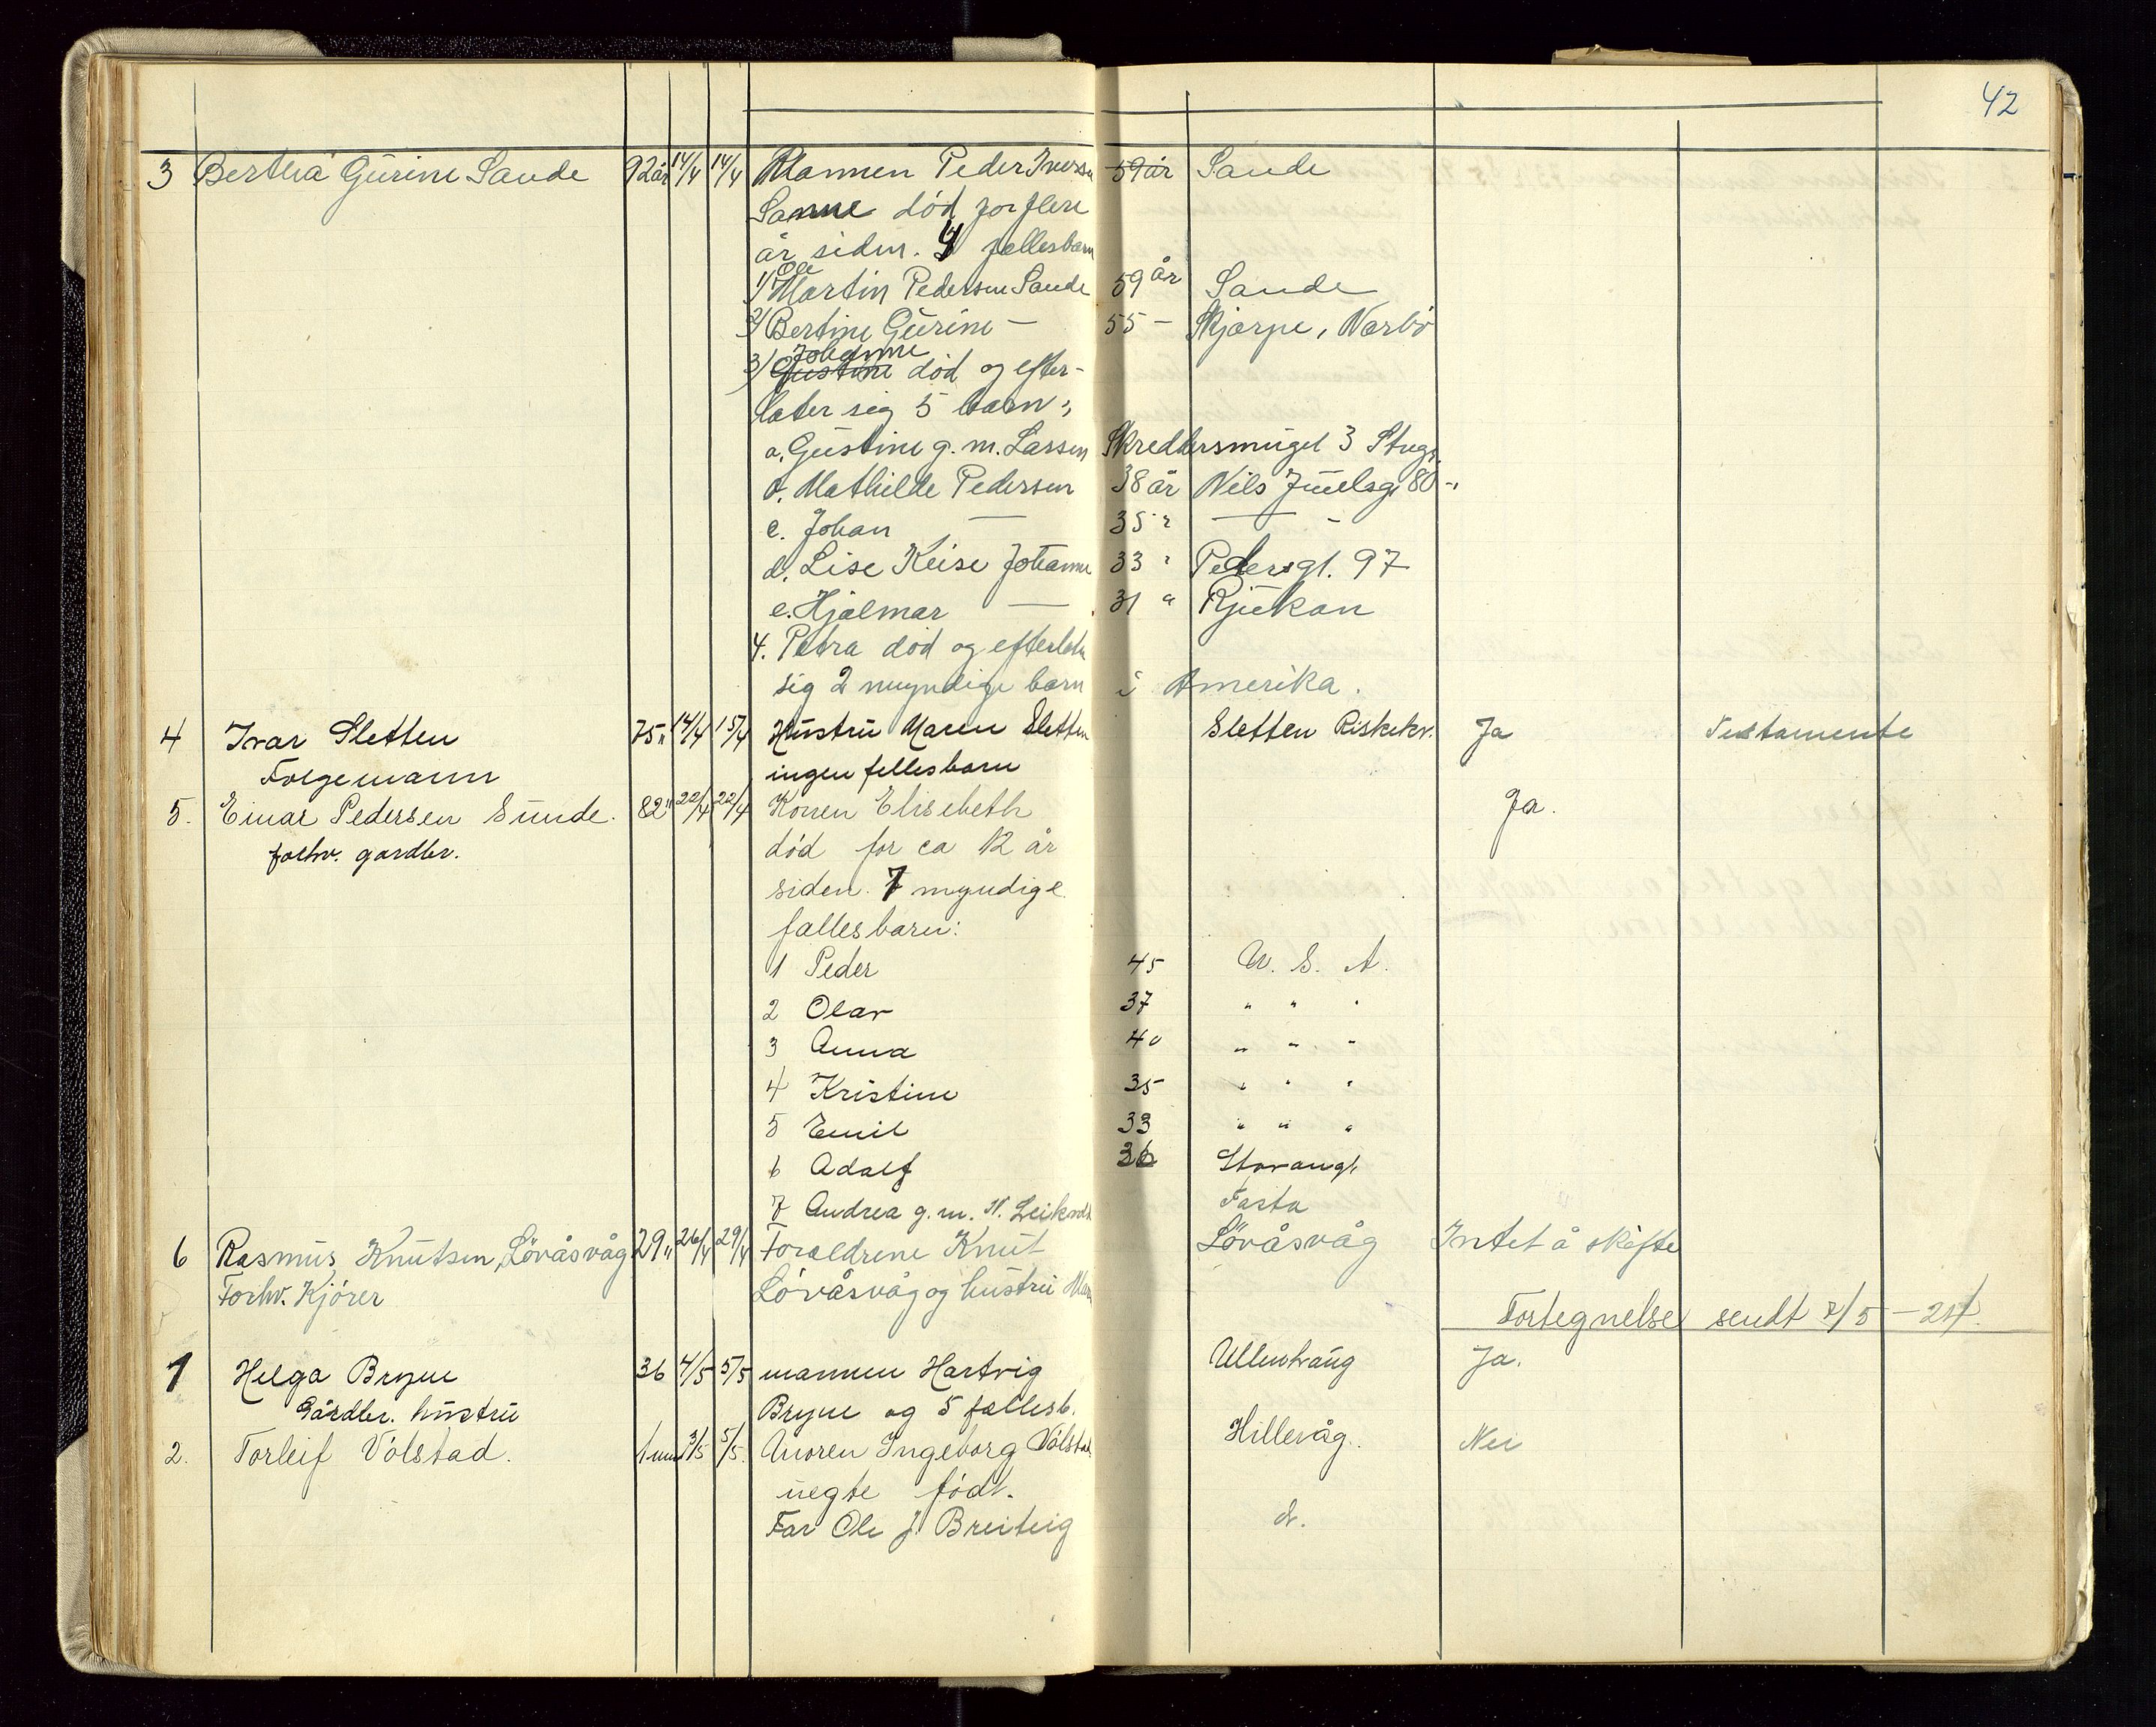 42
3 Bertha Gurine Sande 92 år 14/4 14/4 Mannen Peder Iversen 59 år Sande
Sanne død for flere
år siden. 4 fellesbarn
1) Ole Martin Pedersen Sande 59 år Sande
2) Bertine Gurine — 55 — Skjærpe, Varbø
3) Gustine Johanne død og efter-
later sig 5 barn:
a. Gustine g. m. Larsen Skreddersmuget 3 Stvgr.
b. Mathilde Pedersen 38 år Nils Juelsgt 80 -"
c. Johan — 35 " — -
d. Lise Keise Johanne 33 " Pedersgt. 97
e. Hjalmar — 31 " Rjukan
4. Petra død og efterlater
sig 2 myndige barn i Amerika.
4 Ivar Sletten 75 " 14/4 15/4 Hustru Maren Sletten Sletten Riskekv. Ja Testamente
Folgemann ingen fellesbarn
5. Einar Pedersen Sunde. 82 " 22/4 22/4 Konen Elisebeth Ja.
forhv. gardbr. død for ca 12 år
siden. 7 myndige
fallesbarn:
1 Peder 45 U. S. A.
2 Olav 37 " " "
3 Anna 40 " " "
4 Kristine 35 " " "
5 Emil 33 " " "
6 Adolf 36 Stavangr.
7 Andrea g. m. N. Tasta
6 Rasmus Knutsen, Løvåsvåg 29 " 26/4 29/4 Foreldrene Knut Løvåsvåg Intet å skifte
Forhv. Kjører Løvåsvåg og hustru
Fortegnelse sendt 2/5 -
1 Helga Bryne 36 4/5 5/5 mannen Hartvig Ullenhaug Ja.
Gårdbr. hustru Bryne og 5 fallesb.
2. Torleif Volstad. 1 mnd 3/5 5/5. Moren Ingeborg Volstad Hillevåg. Nei
uegte født.
Far Ole J. Breiteig d.